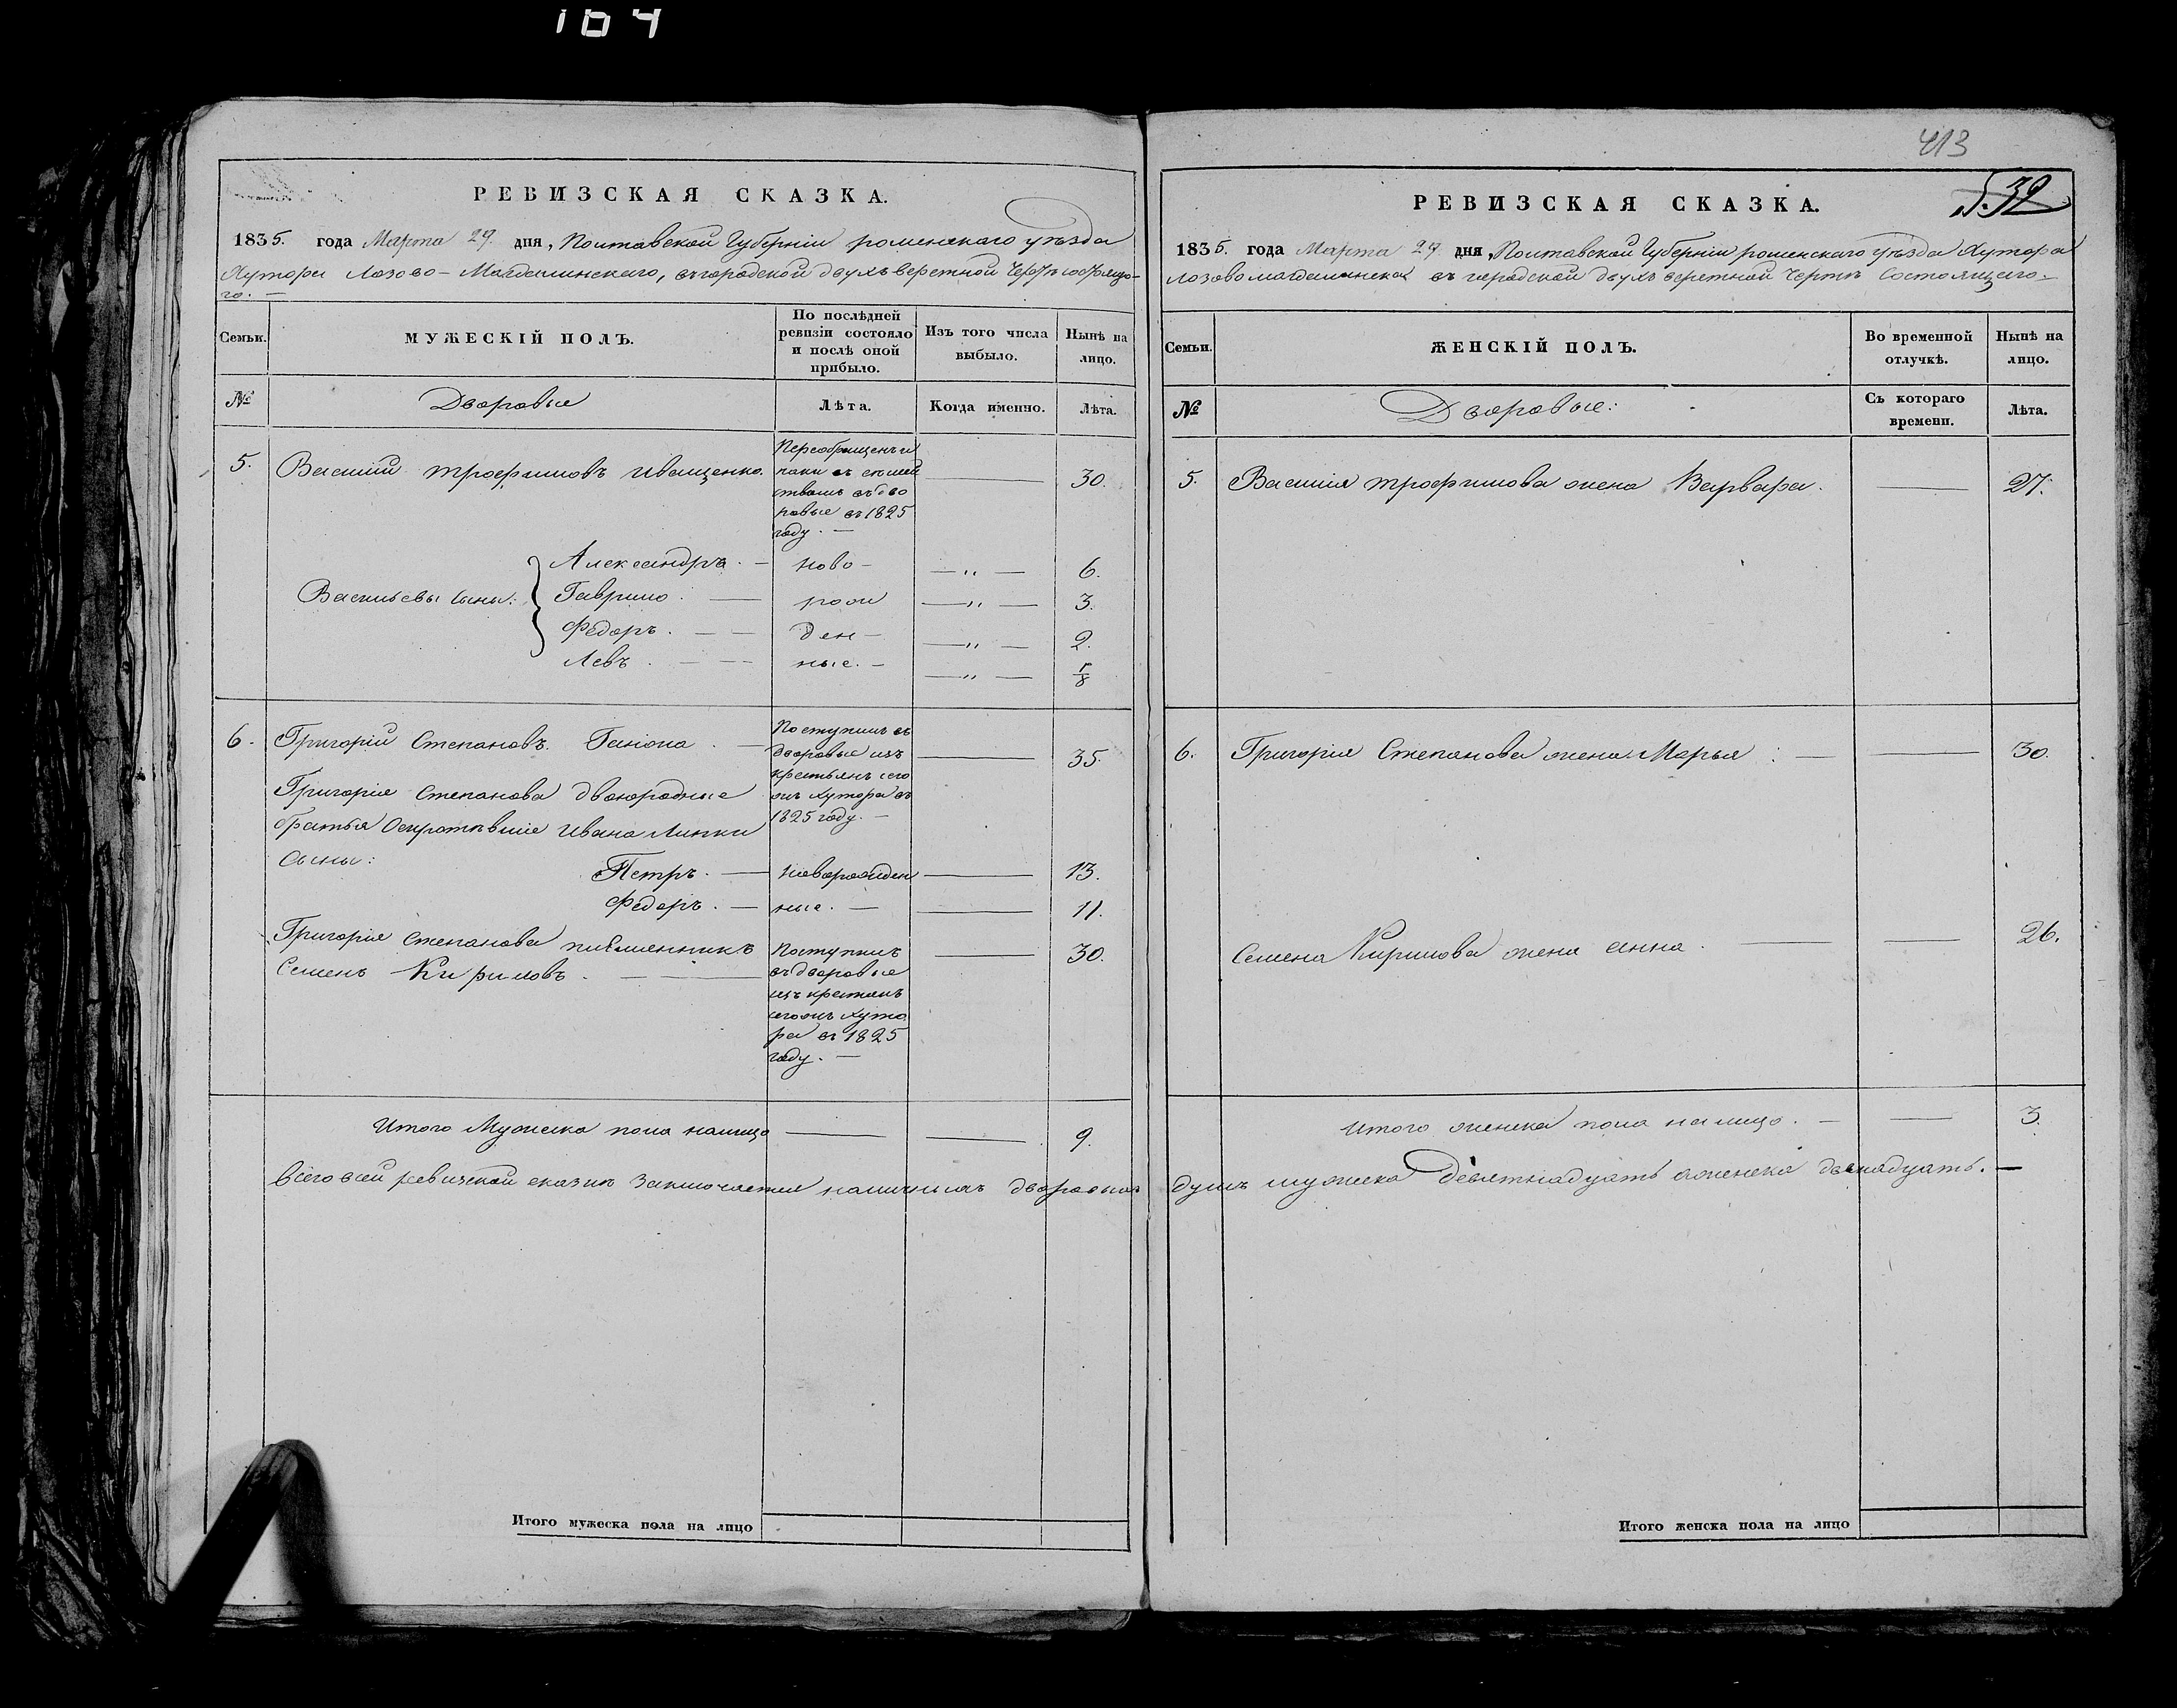 104
РЕВИЗСКАЯ СКАЗКА.
1835. года Марта 29. дня, Полтавской Губерніи роменскаго уѣзда
Хутора Лозово-Магдалинскаго, въ городской двухъ верстной чертѣ состояща-
го. —
Семьи.
МУЖЕСКІЙ ПОЛЪ.
По послѣдней
ревизіи состояло
и послѣ оной
прибыло.
Изъ того числа
выбыло.
Нынѣ на
лицо.
№
Дворовые
Лѣта.
Когда именно.
Лѣта.
5. Василій трофимовъ иващенко. 30.
въ 1825
году. —
Васильевы сыны:
Александръ. — ново — — „ — 6.
Гаврило. — рож — „ — 3.
Федоръ. — — ден — — „ — 2.
Левъ. — — ные. — — „ — 1/8
6. Григорій Степановъ. — 35.
Поступилъ въ
дворовые изъ
крестьянъ сего
жъ хутора въ
1825 году. —
Григорія Степанова двоюродные
братья осиротѣвшіе ивана Липки
сыны:
Петръ. — новорожден — 13.
Федоръ. — ные. — — 11.
Григорія Степанова племенникъ
Семенъ Кириловъ. — — 30.
Поступилъ
въ дворовые
изъ крестянъ
сегожъ хуто
ра въ 1825
году. —
Итого Мужеска пола налицо — — 9.
Всего въ сей ревизской сказкѣ заключается наличныхъ дворовыхъ
Итого мужеска пола на лицо
413
532
РЕВИЗСКАЯ СКАЗКА.
1835. года Марта 29 дня, Полтавской Губерніи роменскаго уѣзда Хутора
Лозовомагдалинска въ городской двухъ верстной чертѣ состоящаго. —
Семьи.
ЖЕНСКІЙ ПОЛЪ.
Во временной
отлучкѣ.
Нынѣ на
лицо.
№
Дворовые:
Съ котораго
времени.
Лѣта.
5. Василія трофимова жена Варвара. — 27.
6. Григорія Степанова жена Марья: — — 30.
Семена Кирилова жена анна. — — 26.
итого женска пола на лицо. — — 3.
душъ мужеска девятнадцать аженска двенадцать. —
Итого женска пола на лицо